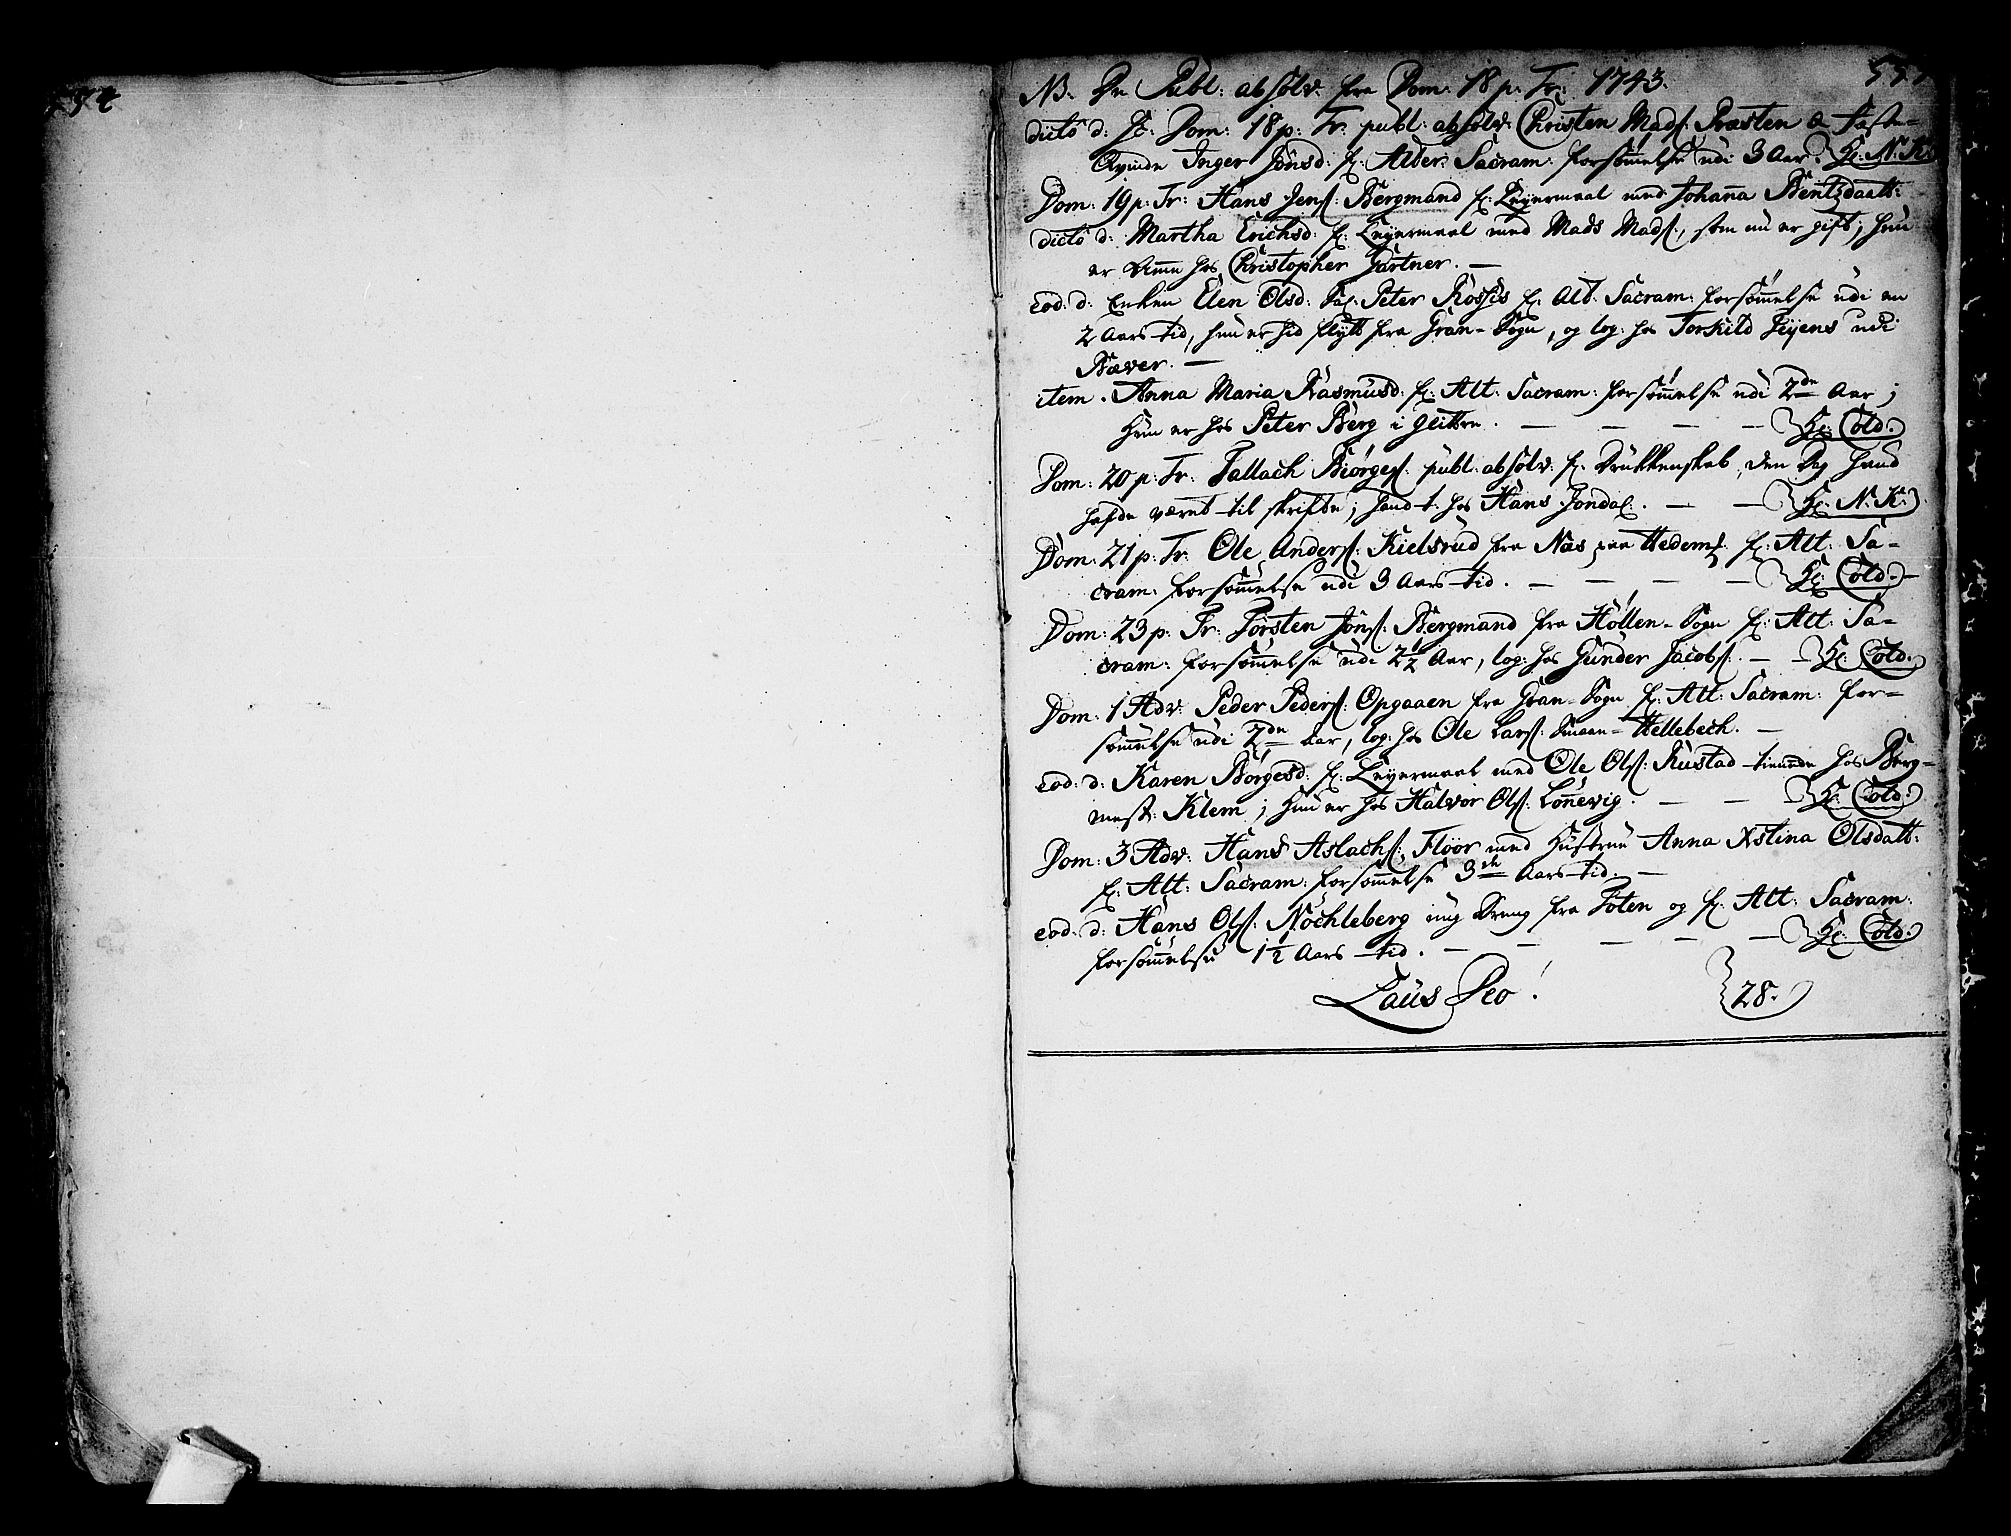 NB. De Publ: absolv: fra Dom: 18 p: Tr: 1743.
dicto d: Dom: 18 p: Tr: publ: absolv: Christen Madſ: Præsten & Feste-
Qvinde Inger Jönsd: f: Alter: Sacram: forsömmelse udi 3 Aar. Hr: N: K:
Dom: 19 p: Tr: Hans Jenſ: Bergmand f: Leyermaal med Johanna Bentzdaatt:
dicto d: Martha Erichsd: f: Leyermaal med Mads Madſ:, som nu er gift; hun
er Amme hos Christopher Gartner. —
eod: d: Enken Elen Olsd: Sal: Peter Rossis f: Alt: Sacram: forsömmelse udi en
2 Aars-tid, hun er hid flytt fra Gran-Sogn, og log: hos Torkild Jyens udi
Bæver. —
item. Anna Maria Rasmusd: f: Alt: Sacram: forsömmelse udi 2de Aar;
Hun er hos Peter Berg i Glittre. — — — — Hr: Cold:
Dom: 20 p: Tr: Tallach Biörgeſ: publ: absolv: f: Drukkenskab, den Dag hand
hafde været til skrifte; hand t: hos Hans Jondal. — — Hr: N: K:
Dom: 21 p: Tr: Ole Anderſ: Kielsrud fra Næs paa Hedemſ: f: Alt: Sa-
cram: forsömmelse udi 3 Aars-tid. — — — — Hr: Cold:
Dom: 23 p: Tr: Torsten Jönſ: Bergmand fra Höllen-Sogn f: Alt: Sa-
cram: forsömmelse udi 2½ Aar, log: hos Gunder Jacobſ: — Hr: Cold:
Dom: 1 Adv: Peder Pederſ: Opgaaen fra Gran-Sogn f: Alt: Sacram: for-
sömmelse udi 2de Aar, log: hos Ole Larſ: Smaan-Hellebech. —
eod: d: Karen Börgesd: f: Leyermaal med Ole Olſ: Rustad tienende hos Berg-
mest: Klem; Hun er hos Halvor Olſ: Lönnevig. — — Hr: Cold:
Dom: 3 Adv: Hans Aslachſ: Flöor med Hustrue Anna Xstina Olsdatt:
f: Alt: Sacram: forsömmelse 3de Aars-tid. —
eod: d: Hans Olſ: Nöchleberg ung Dreng fra Toten og f: Alt: Sacram:
forsömmelse 1½ Aars-tid. — — — — — Hr: Cold:
Laus Deo! 28.